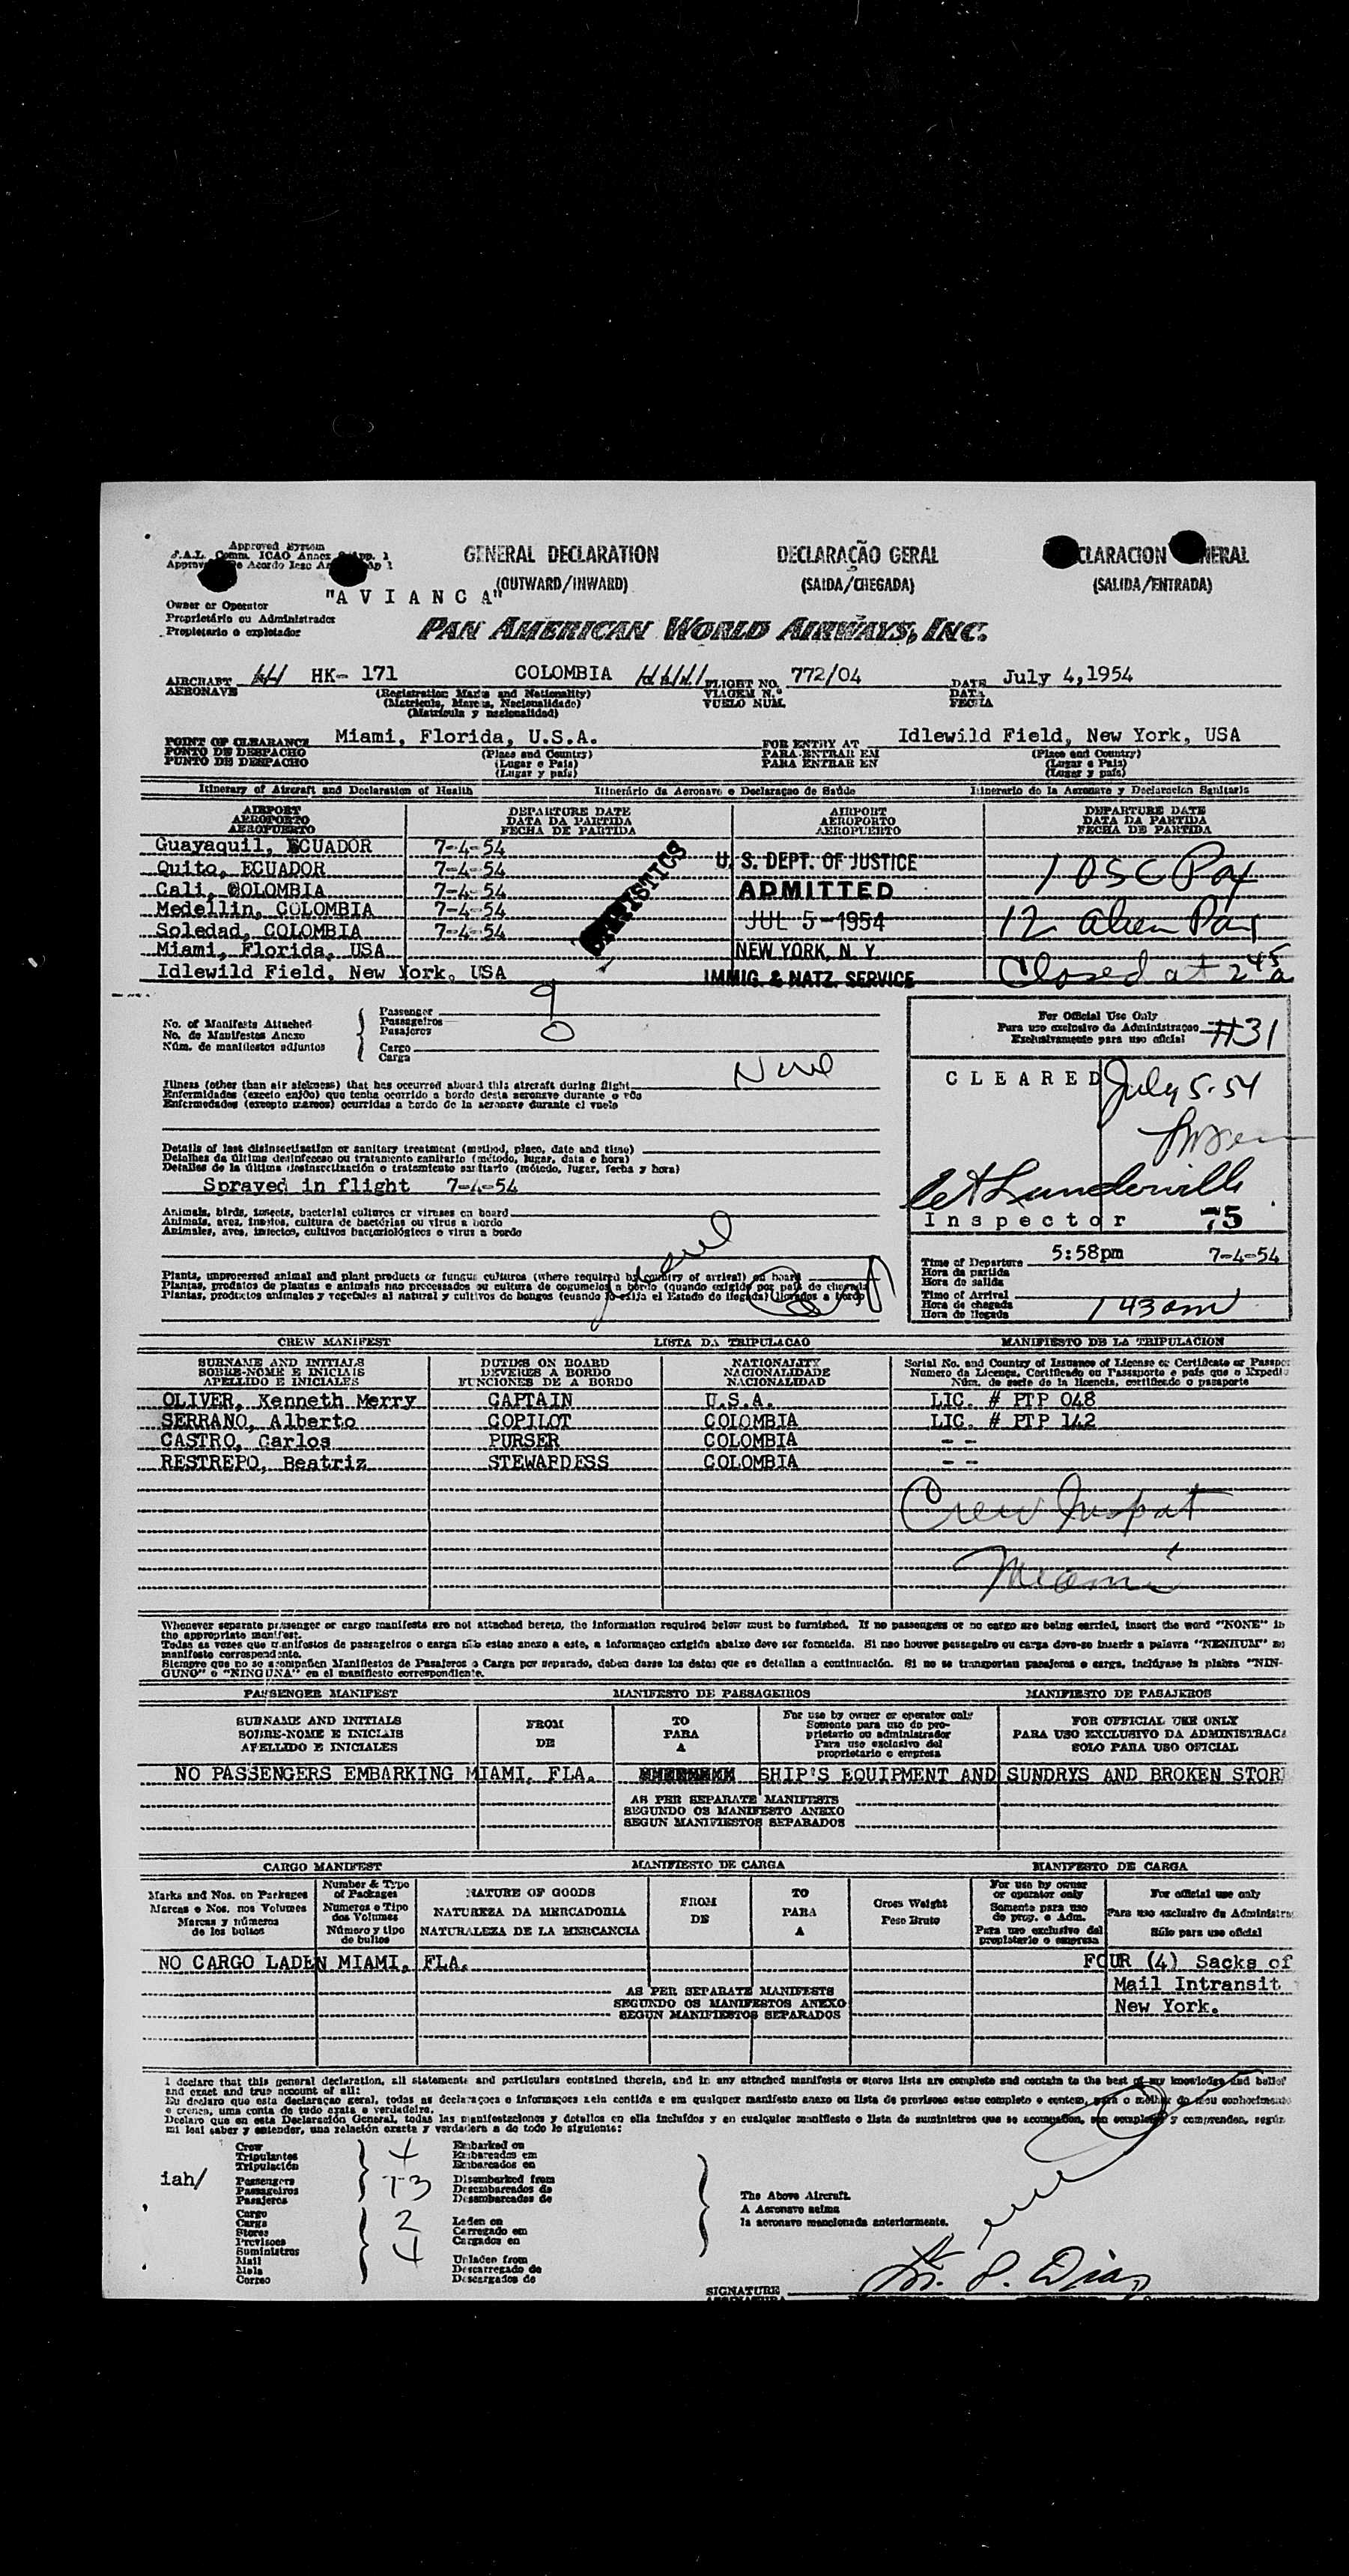 Approved System
F.A.L. Comm. ICAO Annex App. 1
GENERAL DECLARATION
DECLARAÇÃO GERAL
(OUTWARD/INWARD)
(SAIDA/CHEGADA)
(SALIDA/ENTRADA)
"A V I A N C A"
Owner or Operator
Proprietário ou Administrador
Propietario o explotador
PAN AMERICAN WORLD AIRWAYS, INC.
AIRCRAFT HK- 171 COLOMBIA FLIGHT NO. 772/04 DATE July 4,1954
AERONAVE (Registration Marks and Nationality) VIAGEM N.º DATA
(Matricula, Marcas, Nacionalidade) VUELO NUM. FECHA
(Matrícula y nacionalidad)
POINT OF CLEARANCE Miami, Florida, U.S.A. FOR ENTRY AT Idlewild Field, New York, USA
PONTO DE DESPACHO (Place and Country) PARA ENTRAR EM (Place and Country)
PUNTO DE DESPACHO (Lugar e Pais) PARA ENTRAR EN (Lugar e Pais)
(Lugar y país) (Lugar y país)
Itinerary of Aircraft and Declaration of Health Itinerário da Aeronave e Declaraçao de Saúde Itinerario de la Aeronave y Declaracion Sanitaria
AIRPORT DEPARTURE DATE AIRPORT DEPARTURE DATE
AEROPORTO DATA DA PARTIDA AEROPORTO DATA DA PARTIDA
AEROPUERTO FECHA DE PARTIDA AEROPUERTO FECHA DE PARTIDA
Guayaquil, ECUADOR 7-4-54
Quito, ECUADOR 7-4-54
Cali, COLOMBIA 7-4-54
Medellin, COLOMBIA 7-4-54
Soledad, COLOMBIA 7-4-54
Miami, Florida, USA
Idlewild Field, New York, USA
STATISTICS
U. S. DEPT. OF JUSTICE
ADMITTED
JUL 5-1954
NEW YORK, N. Y.
IMMIG. & NATZ. SERVICE
1 OSC Pax
12 alien Pax
Closed at 2 45 a
No. of Manifests Attached Passenger 9
No. de Manifestos Anexo Passageiros
Núm. de manifiestos adjuntos Pasajeros 0
Cargo
Carga
Illness (other than air sickness) that has occurred aboard this aircraft during flight
Enfermidades (exceto enjôo) que tenha ocorrido a bordo desta aeronave durante o vôo
Enfermedades (excepto mareos) ocurridas a bordo de la aeronave durante el vuelo
Details of last disinsectisation or sanitary treatment (method, place, date and time)
Detalhes da última desinfeccao ou tratamento sanitario (método, lugar, data e hora)
Detalles de la última desinsectización o tratamiento sanitario (método, lugar, fecha y hora)
Sprayed in flight 7-4-54
Animals, birds, insects, bacterial cultures or viruses on board
Animais, aves, insetos, cultura de bactérias ou virus a bordo
Animales, aves, insectos, cultivos bacteriológicos o virus a bordo
Plants, unprocessed animal and plant products or fungus cultures (where required by country of arrival) on board
Plantas, produtos de plantas e animais nao processados ou cultura de cogumelos a bordo (quando exigido por país de chegada)
Plantas, productos animales y vegetales al natural y cultivos de hongos (cuando lo exija el Estado de llegada) llevados a bordo
For Official Use Only
Para uso exclusivo da Administraçao #31
Exclusivamente para uso oficial
CLEARED July 5-54
Inspector 75
Time of Departure 5:58pm 7-4-54
Hora da partida
Hora de salida
Time of Arrival
Hora de chegada 1 43 am
Hora de llegada
CREW MANIFEST LISTA DA TRIPULACAO MANIFIESTO DE LA TRIPULACION
SURNAME AND INITIALS DUTIES ON BOARD NATIONALITY Serial No. and Country of Issuance of License or Certificate or Passpo
SOBRE-NOME E INICIAIS DEVERES A BORDO NACIONALIDADE Numero da Licença, Certificado ou Passaporte e país que o Expedi
APELLIDO E INICIALES FUNCIONES DE A BORDO NACIONALIDAD Núm. de serie de la licencia, certificado o pasaporte
OLIVER, Kenneth Merry CAPTAIN U.S.A. LIC. # PTP 048
SERRANO, Alberto COPILOT COLOMBIA LIC. # PTP 142
CASTRO, Carlos PURSER COLOMBIA --
RESTREPO, Beatriz STEWARDESS COLOMBIA --
Crew Inspat
Miami
Whenever separate passenger or cargo manifests are not attached hereto, the information required below must be furnished. If no passengers or no cargo are being carried, insert the word "NONE" in
the appropriate manifest.
Todas as vezes que manifestos de passageiros o carga não estao anexo a este, a informaçao exigida abaixo deve ser fornecida. Si nao houver passageiro ou carga deve-se inserir a palavra "NENHUM" no
manifesto correspondente.
Siempre que no se acompañen Manifiestos de Pasajeros o Carga por separado, deben darse los datos que se detallan a continuación. Si no se transportan pasajeros o carga, inclúyase la plabra "NIN-
GUNO" o "NINGUNA" en el manifiesto correspondiente.
PASSENGER MANIFEST MANIFESTO DE PASSAGEIROS MANIFIESTO DE PASAJEROS
SURNAME AND INITIALS FROM TO For use by owner or operator only FOR OFFICIAL USE ONLY
SOBRE-NOME E INICIAIS DE PARA Somente para uso do pro- PARA USO EXCLUSIVO DA ADMINISTRACA
APELLIDO E INICIALES A prietario ou administrador SOLO PARA USO OFICIAL
Para uso exclusivo del
propietario o empresa
NO PASSENGERS EMBARKING MIAMI, FLA. SHIP'S EQUIPMENT AND SUNDRYS AND BROKEN STOR
AS PER SEPARATE MANIFESTS
SEGUNDO OS MANIFESTO ANEXO
SEGUN MANIFIESTOS SEPARADOS
CARGO MANIFEST MANIFIESTO DE CARGA MANIFESTO DE CARGA
Marks and Nos. on Packages Number & Type of Packages NATURE OF GOODS FROM TO Gross Weight For use by owner or operator only For official use only
Marcas e Nos. nos Volumes Numeros e Tipo dos Volumes NATUREZA DA MERCADORIA DE PARA Peso Bruto Somente para uso de prop. e Adm. Para uso exclusivo da Administra
Marcas y números de los bultos Número y tipo de bultos NATURALEZA DE LA MERCANCIA A Para uso exclusivo del propietario o empresa Sólo para uso oficial
NO CARGO LADEN MIAMI, FLA. FOUR (4) Sacks of
Mail Intransit
New York.
AS PER SEPARATE MANIFESTS
SEGUNDO OS MANIFESTOS ANEXO
SEGUN MANIFIESTOS SEPARADOS
I declare that this general declaration, all statements and particulars contained therein, and in any attached manifests or stores lists are complete and contain to the best of my knowledge and belief
and exact and true account of all:
Eu declaro que esta declaraçao geral, todas as declaraçoes e informaçoes nela contida e em qualquer manifesto anexo ou lista de provisoes estao completo e contem, para o melhor do meu conhecimento
e crenca, uma conta de tudo exata e verdadeira.
Declaro que en esta Declaración General, todas las manifestaciones y detalles en ella incluidos y en cualquier manifiesto o lista de suministros que se acompañen, son completos y comprenden, según
mi leal saber y entender, una relación exacta y verdadera de todo lo siguiente:
iah/
Crew 4 Embarked on
Tripulantes Embarcados em
Tripulación Embarcados en
Passengers 13 Disembarked from
Passageiros Desembarcados de
Pasajeros Desembarcados de
Cargo 2 Laden on
Carga Carregado em
Stores Cargados en
Provisoes
Suministros 4
Mail Unladen from
Mala Descarregado de
Correo Descargados de
The Above Aircraft.
A Aeronave acima
la aeronave mencionada anteriormente.
SIGNATURE